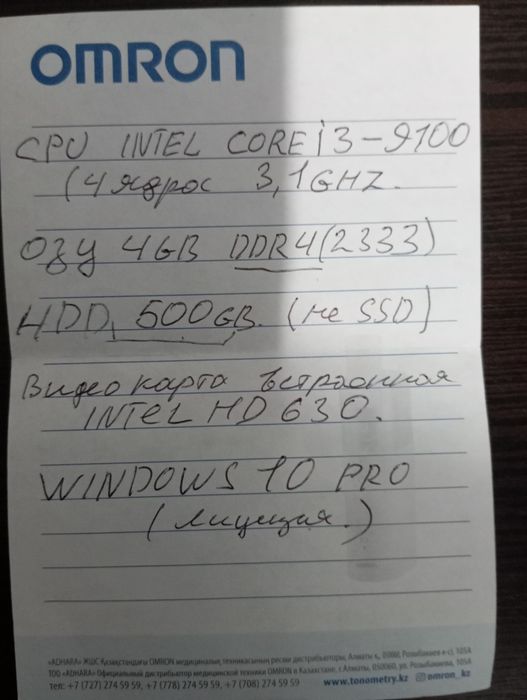 OMRON
CPU INTEL CORE i3-9100
(4 ядрос 3,1GHZ.
ОЗУ 4GB DDR4(2333)
HDD, 500GB. (не SSD)
Видео карта встроенная
INTEL HD 630.
WINDOWS 10 PRO
(лицуция.)
«ADHARA» ЖШС Қазақстандағы OMRON медициналық техникасының ресми дистрибьюторы, Алматы қ., Розыбакиев к-сі, 105А
ТОО «ADHARA» Официальный дистрибьютор медицинской техники OMRON в Казахстане, г. Алматы, 050060, ул. Розыбакиева, 105А
тел: +7 (727) 274 59 59, +7 (778) 274 59 59, +7 (708) 274 59 59 www.tonometry.kz omron_kz